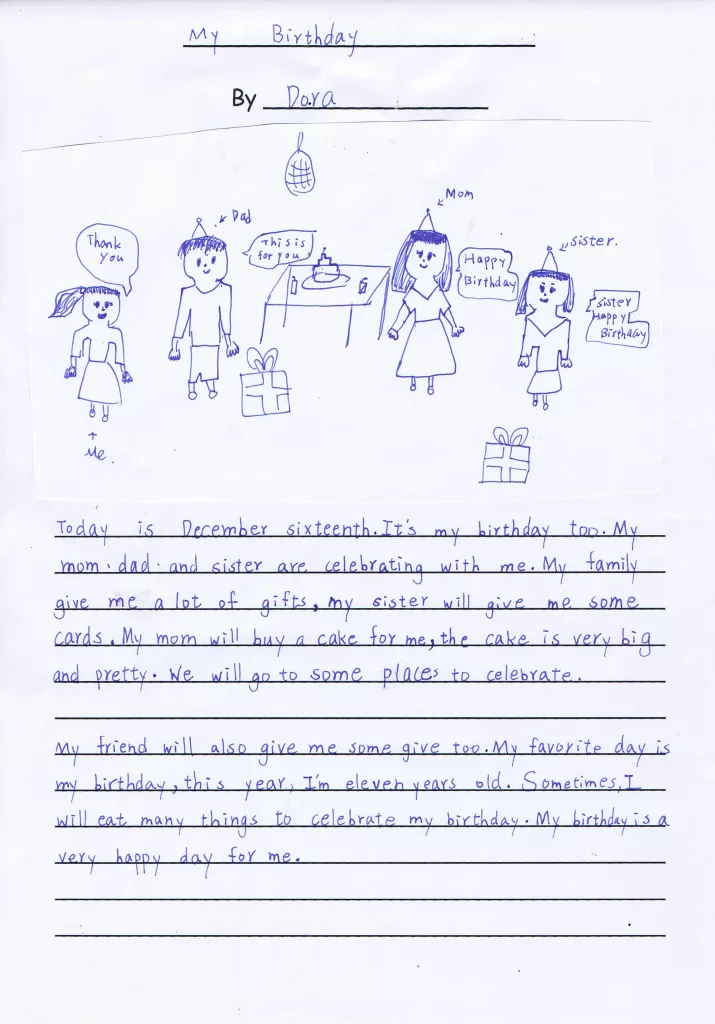 My Birthday
By Dora
Mom
Dad
sister.
Thank you
This is for you
Happy Birthday
sister Happy Birthday
Me.
Today is December sixteenth. It's my birthday too. My
mom. dad. and sister are celebrating with me. My family
give me a lot of gifts, my sister will give me some
cards. My mom will buy a cake for me, the cake is very big
and pretty. We will go to some places to celebrate.
My friend will also give me some give too. My favorite day is
my birthday, this year, I'm eleven years old. Sometimes, I
will eat many things to celebrate my birthday. My birthday is a
very happy day for me.